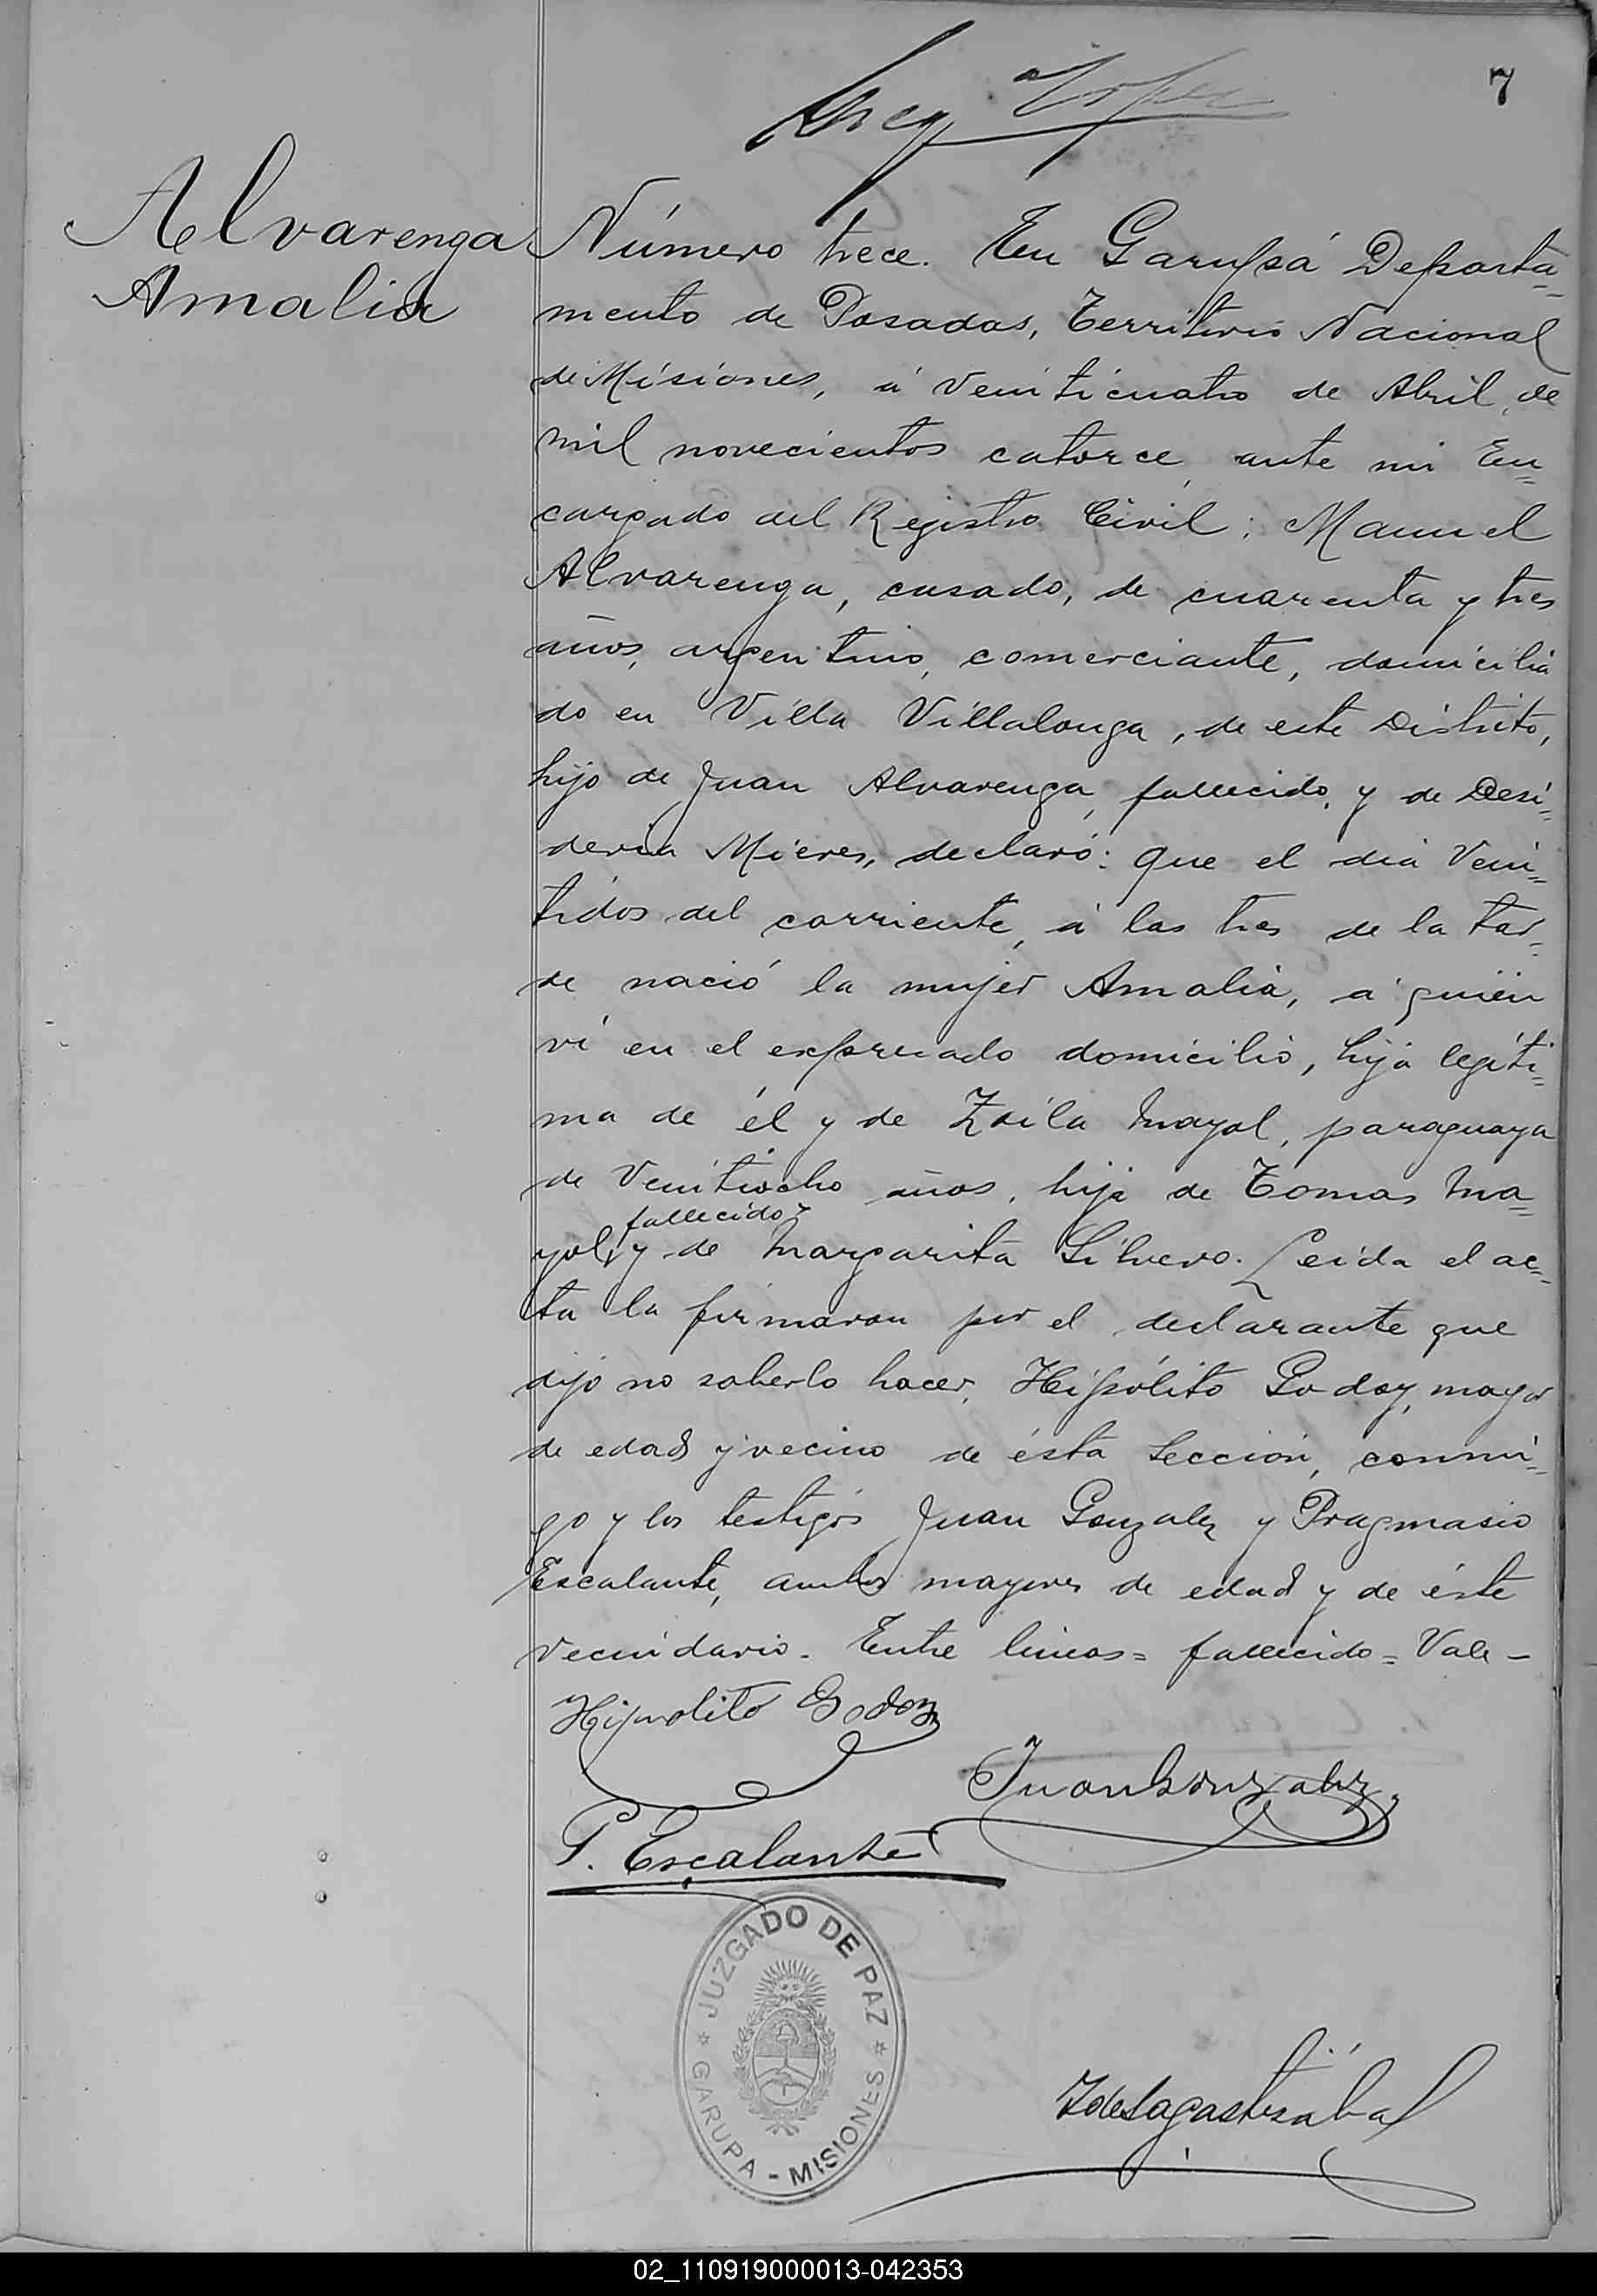 7
Alvarenga
Amalia
Número trece. En Garupá Departa=
mento de Posadas, Territorio Nacional
de Misiones, á veinticuatro de Abril, de
mil novecientos catorce, ante mi En=
cargado del Registro Civil: Manuel
Alvarenga, casado, de cuarenta y tres
años, argentino, comerciante, domicilia
do en Villa Villalonga, de este Distrito,
hijo de Juan Alvarenga, fallecido, y de Desi=
deria Mieres, declaró: que el dia Vein=
tidos del corriente, á las tres de la tar=
de nació la mujer Amalia, a quién
ví en el expresado domicilio, hija legíti=
ma de él y de Zoila Mayol, paraguaya
de Veintiocho años, hija de Tomas Ma=
fallecido
yol, y de Margarita Silvero. Leida el ac=
ta la firmaron por el declarante que
dijo no saberlo hacer, Hipólito Godoy, mayor
de edad y vecino de ésta Sección, conmi=
go y los testigos Juan Gonzalez y Pragmasio
Escalante, ambos mayores de edad y de éste
vecindario. Entre lineas = fallecido = Vale -
Hipolito Godoy
Juan Gonzalez
P. Escalante
JUZGADO DE PAZ
GARUPA - MISIONES
02_110919000013-042353